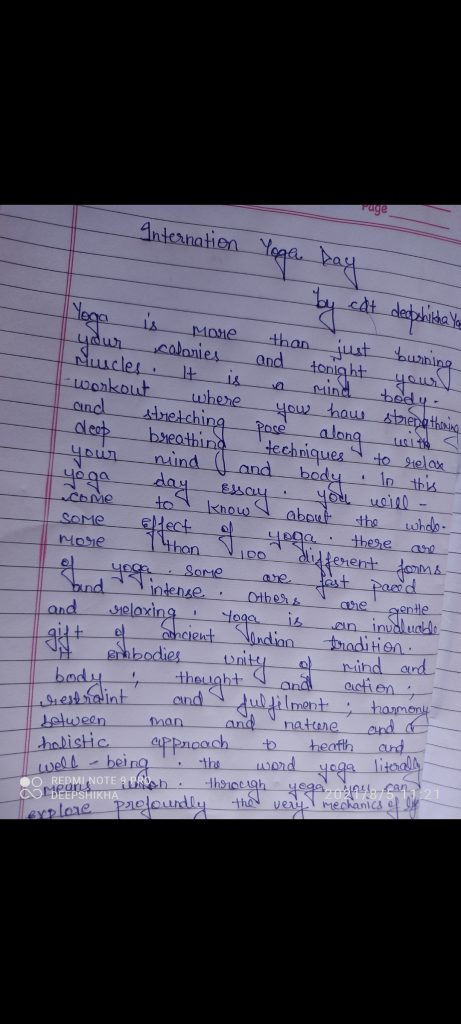 Page
Internation Yoga Day
by cdt deepshikha Ya
Yoga is more than just burning
your calories and tonight your
Muscles. It is a mind body-
workout where you have strengthening
and stretching pace along with
deep breathing techniques to relax
your mind and body. In this
yoga day essay. you will-
come to know about the whole-
some effect of yoga. there are
more than 100 different forms
of yoga. some are fast paced
and intense. Others are gentle
and relaxing. Yoga is an invaluable
gift of ancient Indian tradition.
It embodies unity of mind and
body; thought and action;
restraint and fulfilment; harmony
between man and nature and a
holistic approach to health and
well-being. the word yoga literally
means union. through yoga you can
explore profoundly the very mechanics of life
REDMI NOTE 9 PRO
DEEPSHIKHA
2021/8/5 11:21